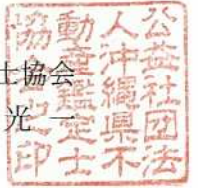 士協会
光 一
公益社団法
人沖縄県不
動産鑑定士
協会之印